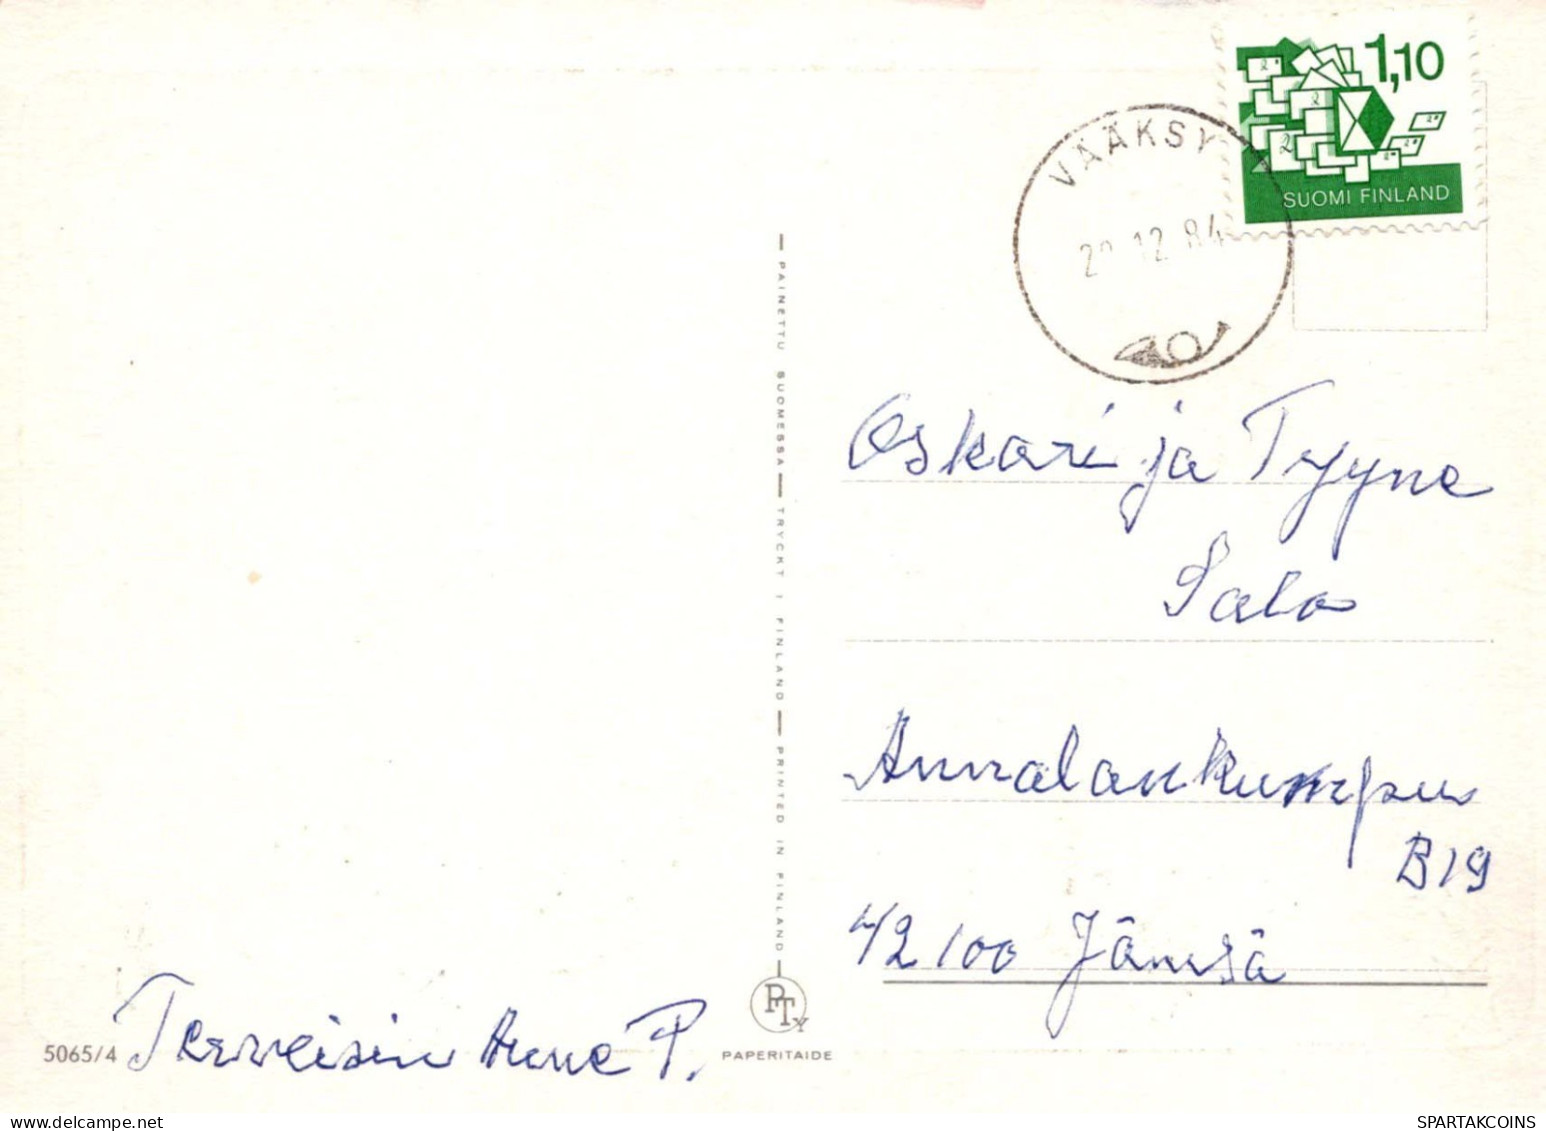 1,10
SUOMI FINLAND
VÄÄKSY
12.84
Oskari ja Tyyne
Salo
Annalankumpu
B19
42100 Jämsä
PAINETTU SUOMESSA — TRYCKT I FINLAND — PRINTED IN FINLAND
PTY
PAPERITAIDE
5065/4
Terveisin Anne P.
SPARTAKCOINS